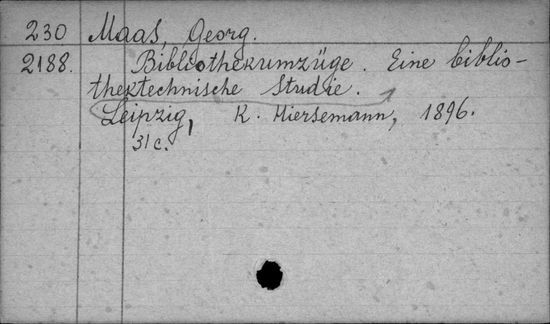 230 Maas, Georg.
2188. Bibliothekumzüge. Eine biblio-
thektechnische Studie.
Leipzig, K. Hiersemann, 1896.
31 c.